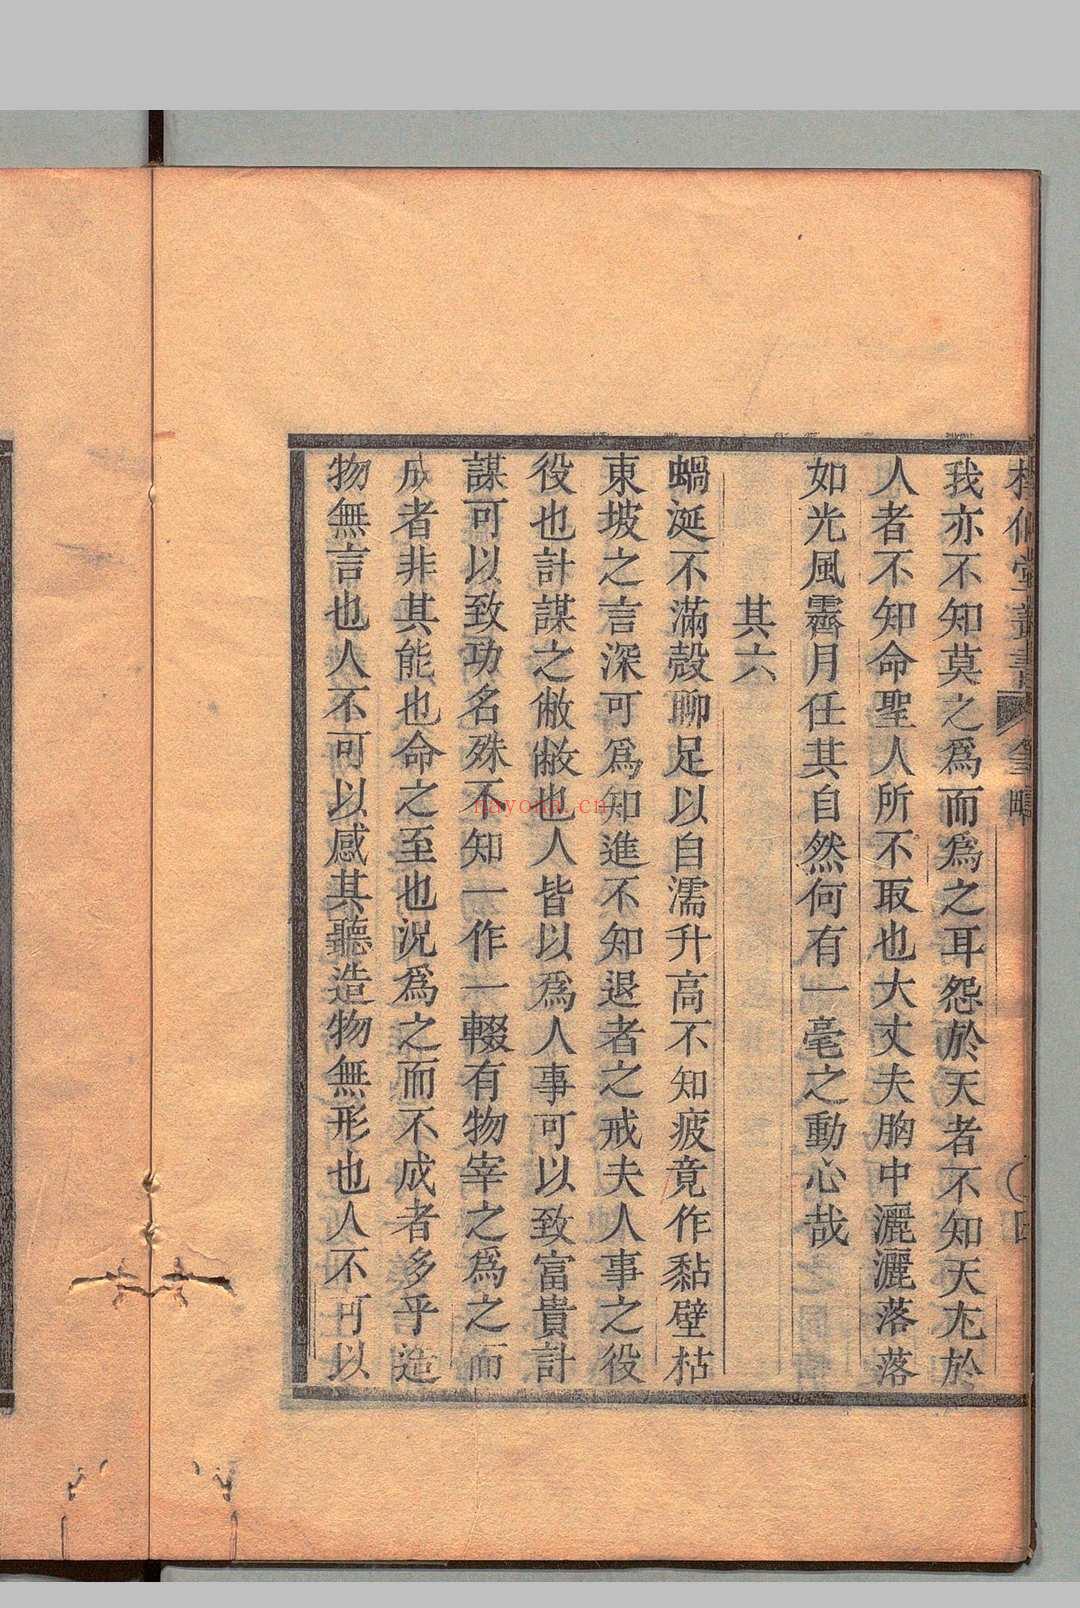 我亦不知莫之爲而爲之耳怨於天者不知天尤於
人者不知命聖人所不取也大丈夫胸中灑灑落落
如光風霽月任其自然何有一毫之動心哉
其六
蝸涎不滿殼聊足以自濡升高不知疲竟作黏壁枯
東坡之言深可爲知進不知退者之戒夫人事之役
役也計謀之敝敝也人皆以爲人事可以致富貴計
謀可以致功名殊不知一作一輟有物宰之爲之而
成者非其能也命之至也況爲之而不成者多乎造
物無言也人不可以感其聽造物無形也人不可以
nayona.cn